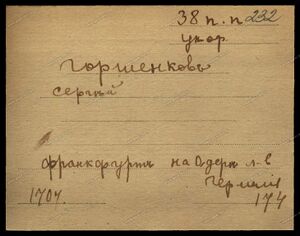 38 п. п 232
укор.
Горшенковъ
Сергѣй
Франкфуртъ на Одерѣ л-в
Германія
1704. 174